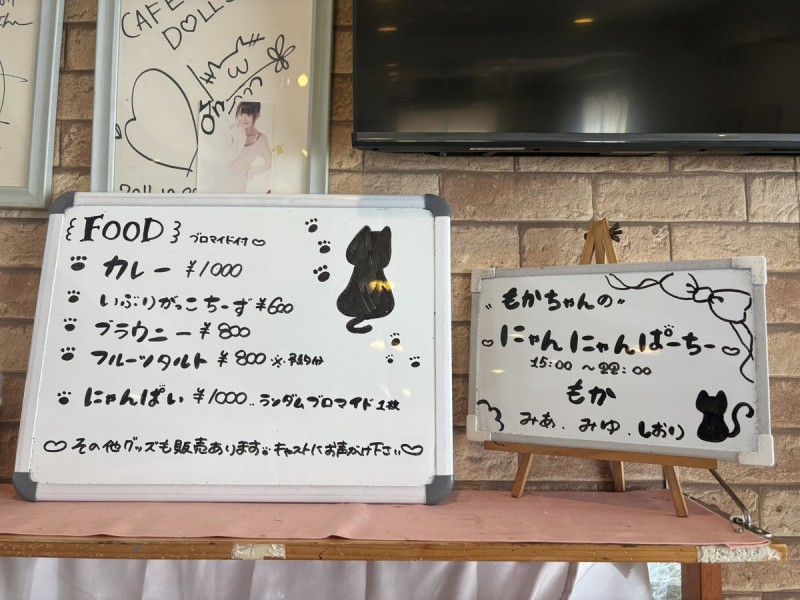 CAFE
DOLL
FOOD ブロマイド付♡
カレー ¥1000
いぶりがっこちーず ¥600
ブラウニー ¥800
フルーツタルト ¥800 ※予約分
にゃんぱい ¥1000.. ランダムブロマイド1枚
♡その他グッズも販売あります キャストにお声がけ下さい♡
"もかちゃんの"
♡にゃんにゃんぱーちー♡
15:00 ~ 22:00
もか
みあ.みゆ.しおり